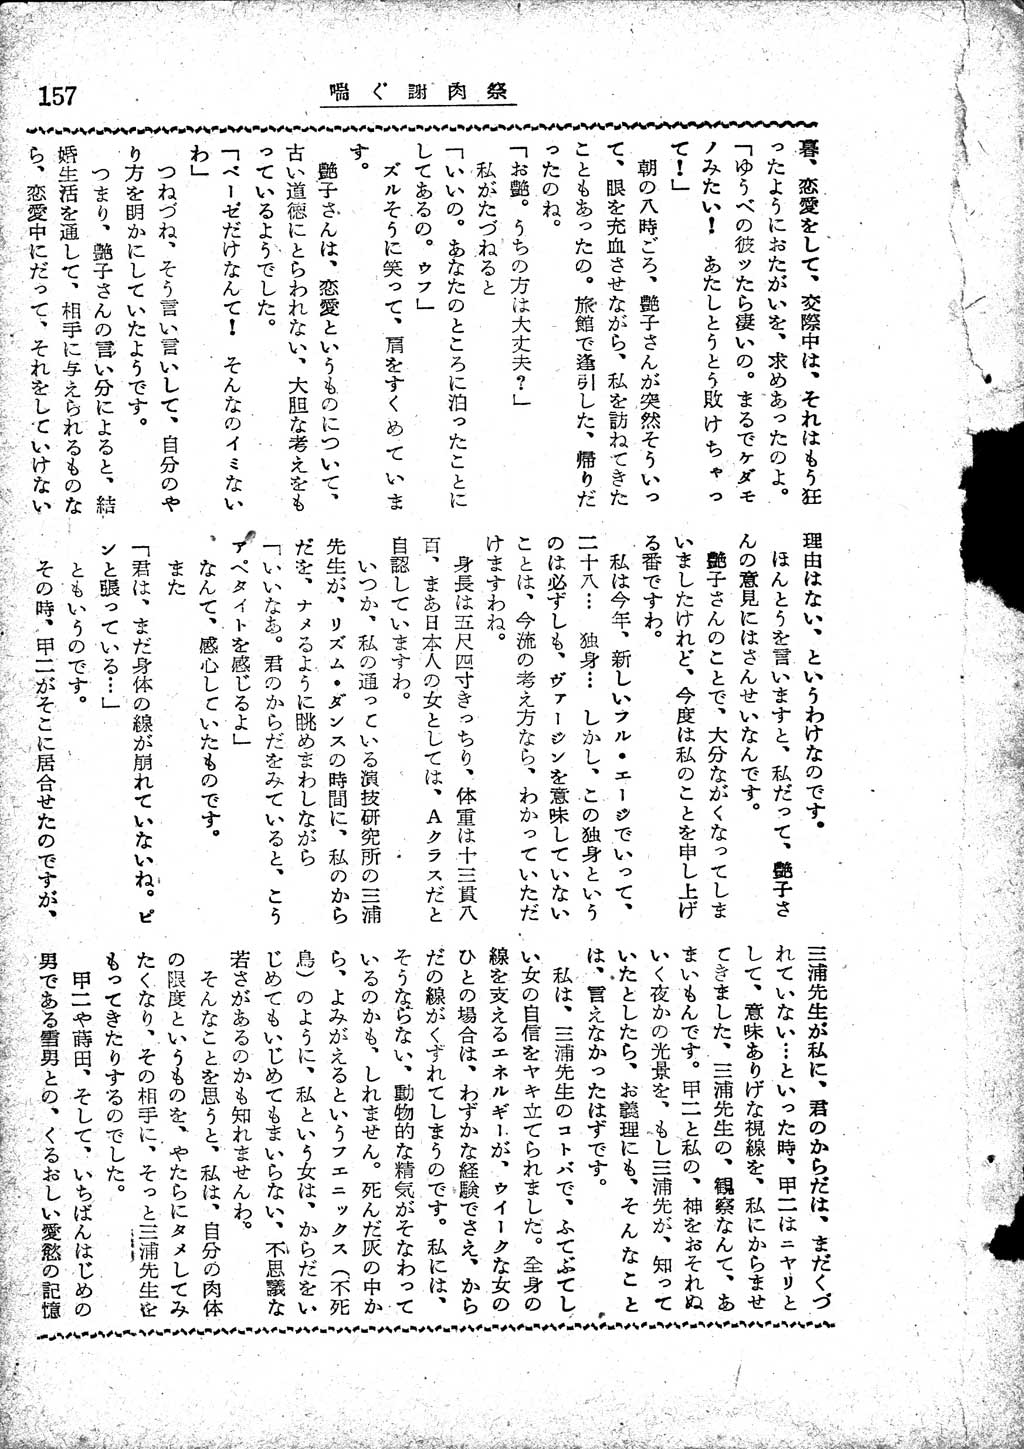 157
喘ぐ謝肉祭
暮、恋愛をして、交際中は、それはもう狂
ったようにおたがいを、求めあったのよ。
「ゆうべの彼ッたら凄いの。まるでケダモ
ノみたい！　あたしとうとう敗けちゃっ
て！」
朝の八時ごろ、艶子さんが突然そういっ
て、眼を充血させながら、私を訪ねてきた
こともあったの。旅館で逢引した、帰りだ
ったのね。
「お艶。うちの方は大丈夫？」
私がたづねると
「いいの。あなたのところに泊ったことに
してあるの。ウフ」
ズルそうに笑って、肩をすくめていま
す。
艶子さんは、恋愛というものについて、
古い道徳にとらわれない、大胆な考えをも
っているようでした。
「ベーゼだけなんて！　そんなのイミない
わ」
つねづね、そう言い言いして、自分のや
り方を明かにしていたようです。
つまり、艶子さんの言い分によると、結
婚生活を通して、相手に与えられるものな
ら、恋愛中にだって、それをしていけない
理由はない、というわけなのです。
ほんとうを言いますと、私だって、艶子さ
んの意見にはさんせいなんです。
艶子さんのことで、大分ながくなってしま
いましたけれど、今度は私のことを申し上げ
る番ですわ。
私は今年、新しいフル・エージでいって、
二十八…　独身…　しかし、この独身という
のは必ずしも、ヴァージンを意味していない
ことは、今流の考え方なら、わかっていただ
けますわね。
身長は五尺四寸きっちり、体重は十三貫八
百、まあ日本人の女としては、Ａクラスだと
自認していますわ。
いつか、私の通っている演技研究所の三浦
先生が、リズム・ダンスの時間に、私のから
だを、ナメるように眺めまわしながら
「いいなあ。君のからだをみていると、こう
アペタイトを感じるよ」
なんて、感心していたものです。
また
「君は、まだ身体の線が崩れていないね。ピ
ンと張っている…」
ともいうのです。
その時、甲二がそこに居合せたのですが、
三浦先生が私に、君のからだは、まだくづ
れていない…といった時、甲二はニヤリと
して、意味ありげな視線を、私にからませ
てきました、三浦先生の、観察なんて、あ
まいもんです。甲二と私の、神をおそれぬ
いく夜かの光景を、もし三浦先が、知って
いたとしたら、お義理にも、そんなこと
は、言えなかったはずです。
私は、三浦先生のコトバで、ふてぶてし
い女の自信をヤキ立てられました。全身の
線を支えるエネルギーが、ウイークな女の
ひとの場合は、わずかな経験でさえ、から
だの線がくずれてしまうのです。私には、
そうならない、動物的な精気がそなわって
いるのかも、しれません。死んだ灰の中か
ら、よみがえるというフエニックス（不死
鳥）のように、私という女は、からだをい
じめてもいじめてもまいらない、不思議な
若さがあるのかも知れませんわ。
そんなことを思うと、私は、自分の肉体
の限度というものを、やたらにタメしてみ
たくなり、その相手に、そっと三浦先生を
もってきたりするのでした。
甲二や蒔田、そして、いちばんはじめの
男である雪男との、くるおしい愛慾の記憶